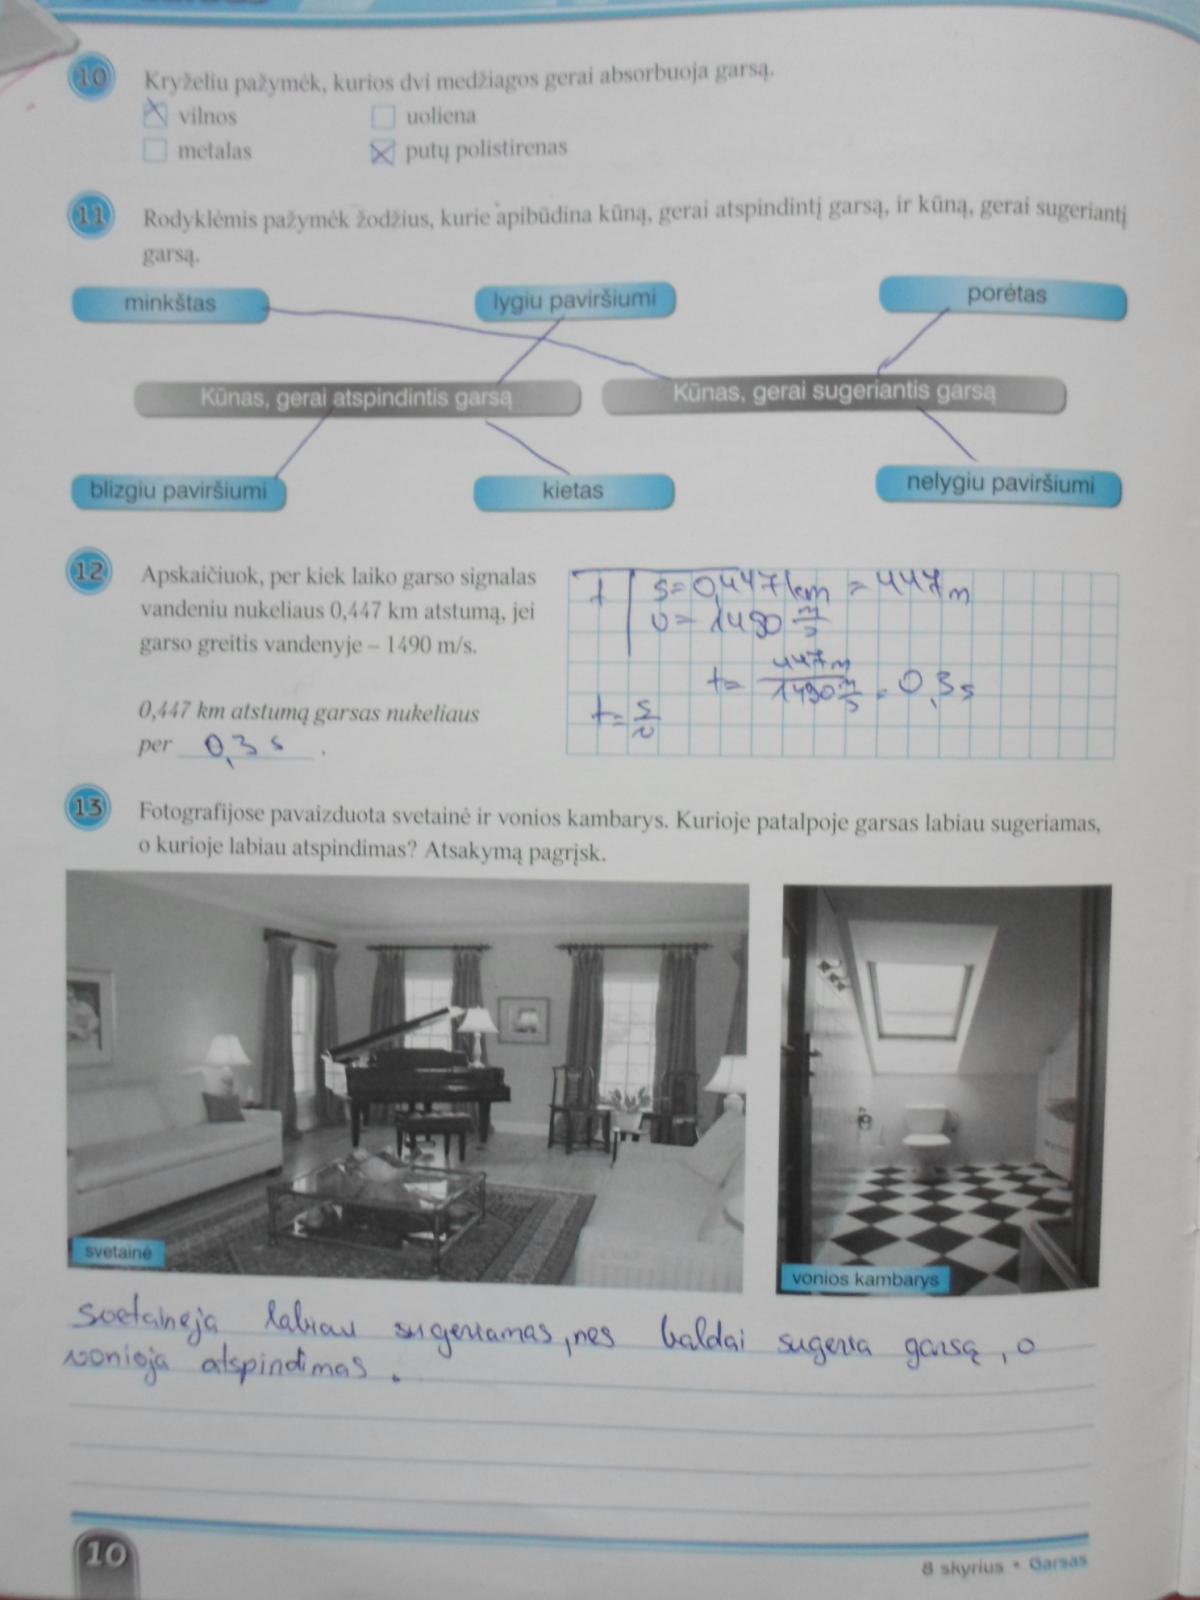 10 Kryželiu pažymėk, kurios dvi medžiagos gerai absorbuoja garsą.
vilnos uoliena
metalas putų polistirenas
11 Rodyklėmis pažymėk žodžius, kurie apibūdina kūną, gerai atspindintį garsą, ir kūną, gerai sugeriantį
garsą.
minkštas lygiu paviršiumi porėtas
Kūnas, gerai atspindintis garsą Kūnas, gerai sugeriantis garsą
blizgiu paviršiumi kietas nelygiu paviršiumi
12 Apskaičiuok, per kiek laiko garso signalas
vandeniu nukeliaus 0,447 km atstumą, jei
garso greitis vandenyje – 1490 m/s.
0,447 km atstumą garsas nukeliaus
per 0,3 s .
t s = 0,447 km = 447 m
v = 1490 m/s
t = 447 m / 1490 m/s = 0,3 s
t = s/v
13 Fotografijose pavaizduota svetainė ir vonios kambarys. Kurioje patalpoje garsas labiau sugeriamas,
o kurioje labiau atspindimas? Atsakymą pagrįsk.
svetainė
vonios kambarys
svetaineja labiau sugeriamas, nes baldai sugeria garsą, o
vonioja atspindimas.
10
8 skyrius • Garsas